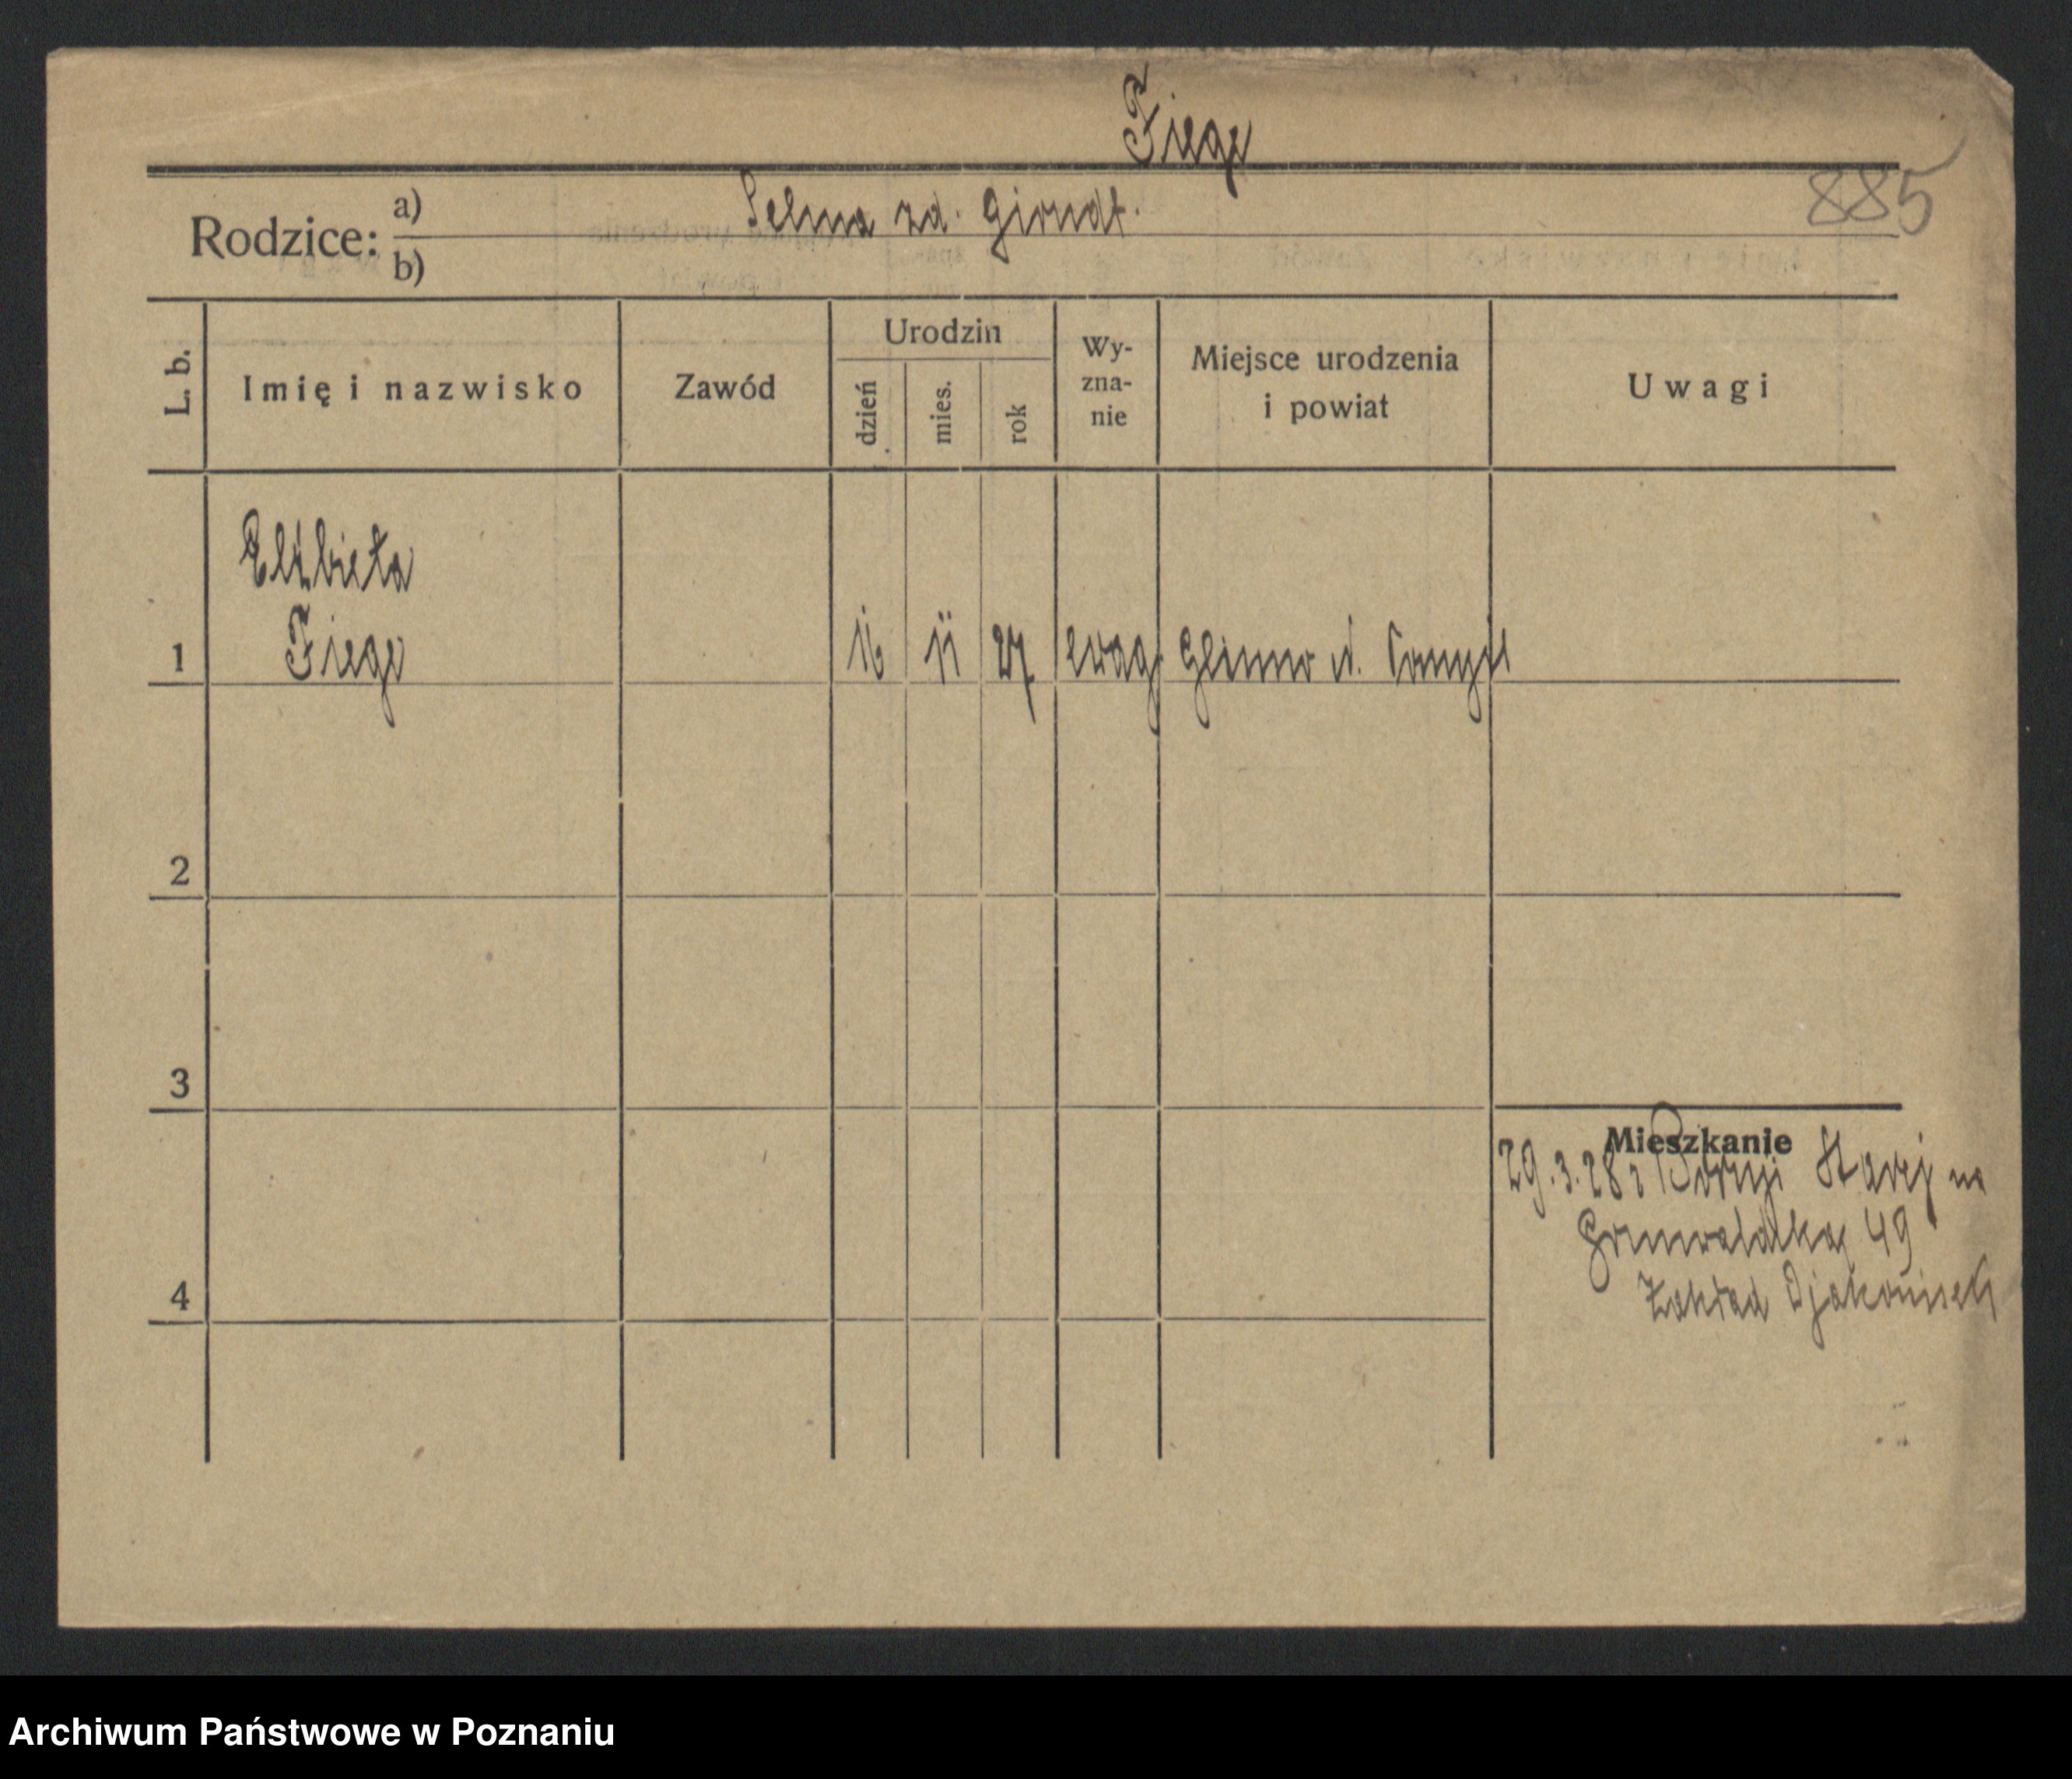 Fiege
885
Rodzice: a) Selma zd. Giondt.
b)
L. b. Imię i nazwisko Zawód Urodzin dzień mies. rok Wy-zna-nie Miejsce urodzenia i powiat Uwagi
Elżbieta
1 Fiege 16 11 27 ewag. Glinno N. Tomyśl
2
3
Mieszkanie
29.3.28 z Borui Starej na
Grunwaldzką 49
4 Zakład Djakonisek
Archiwum Państwowe w Poznaniu